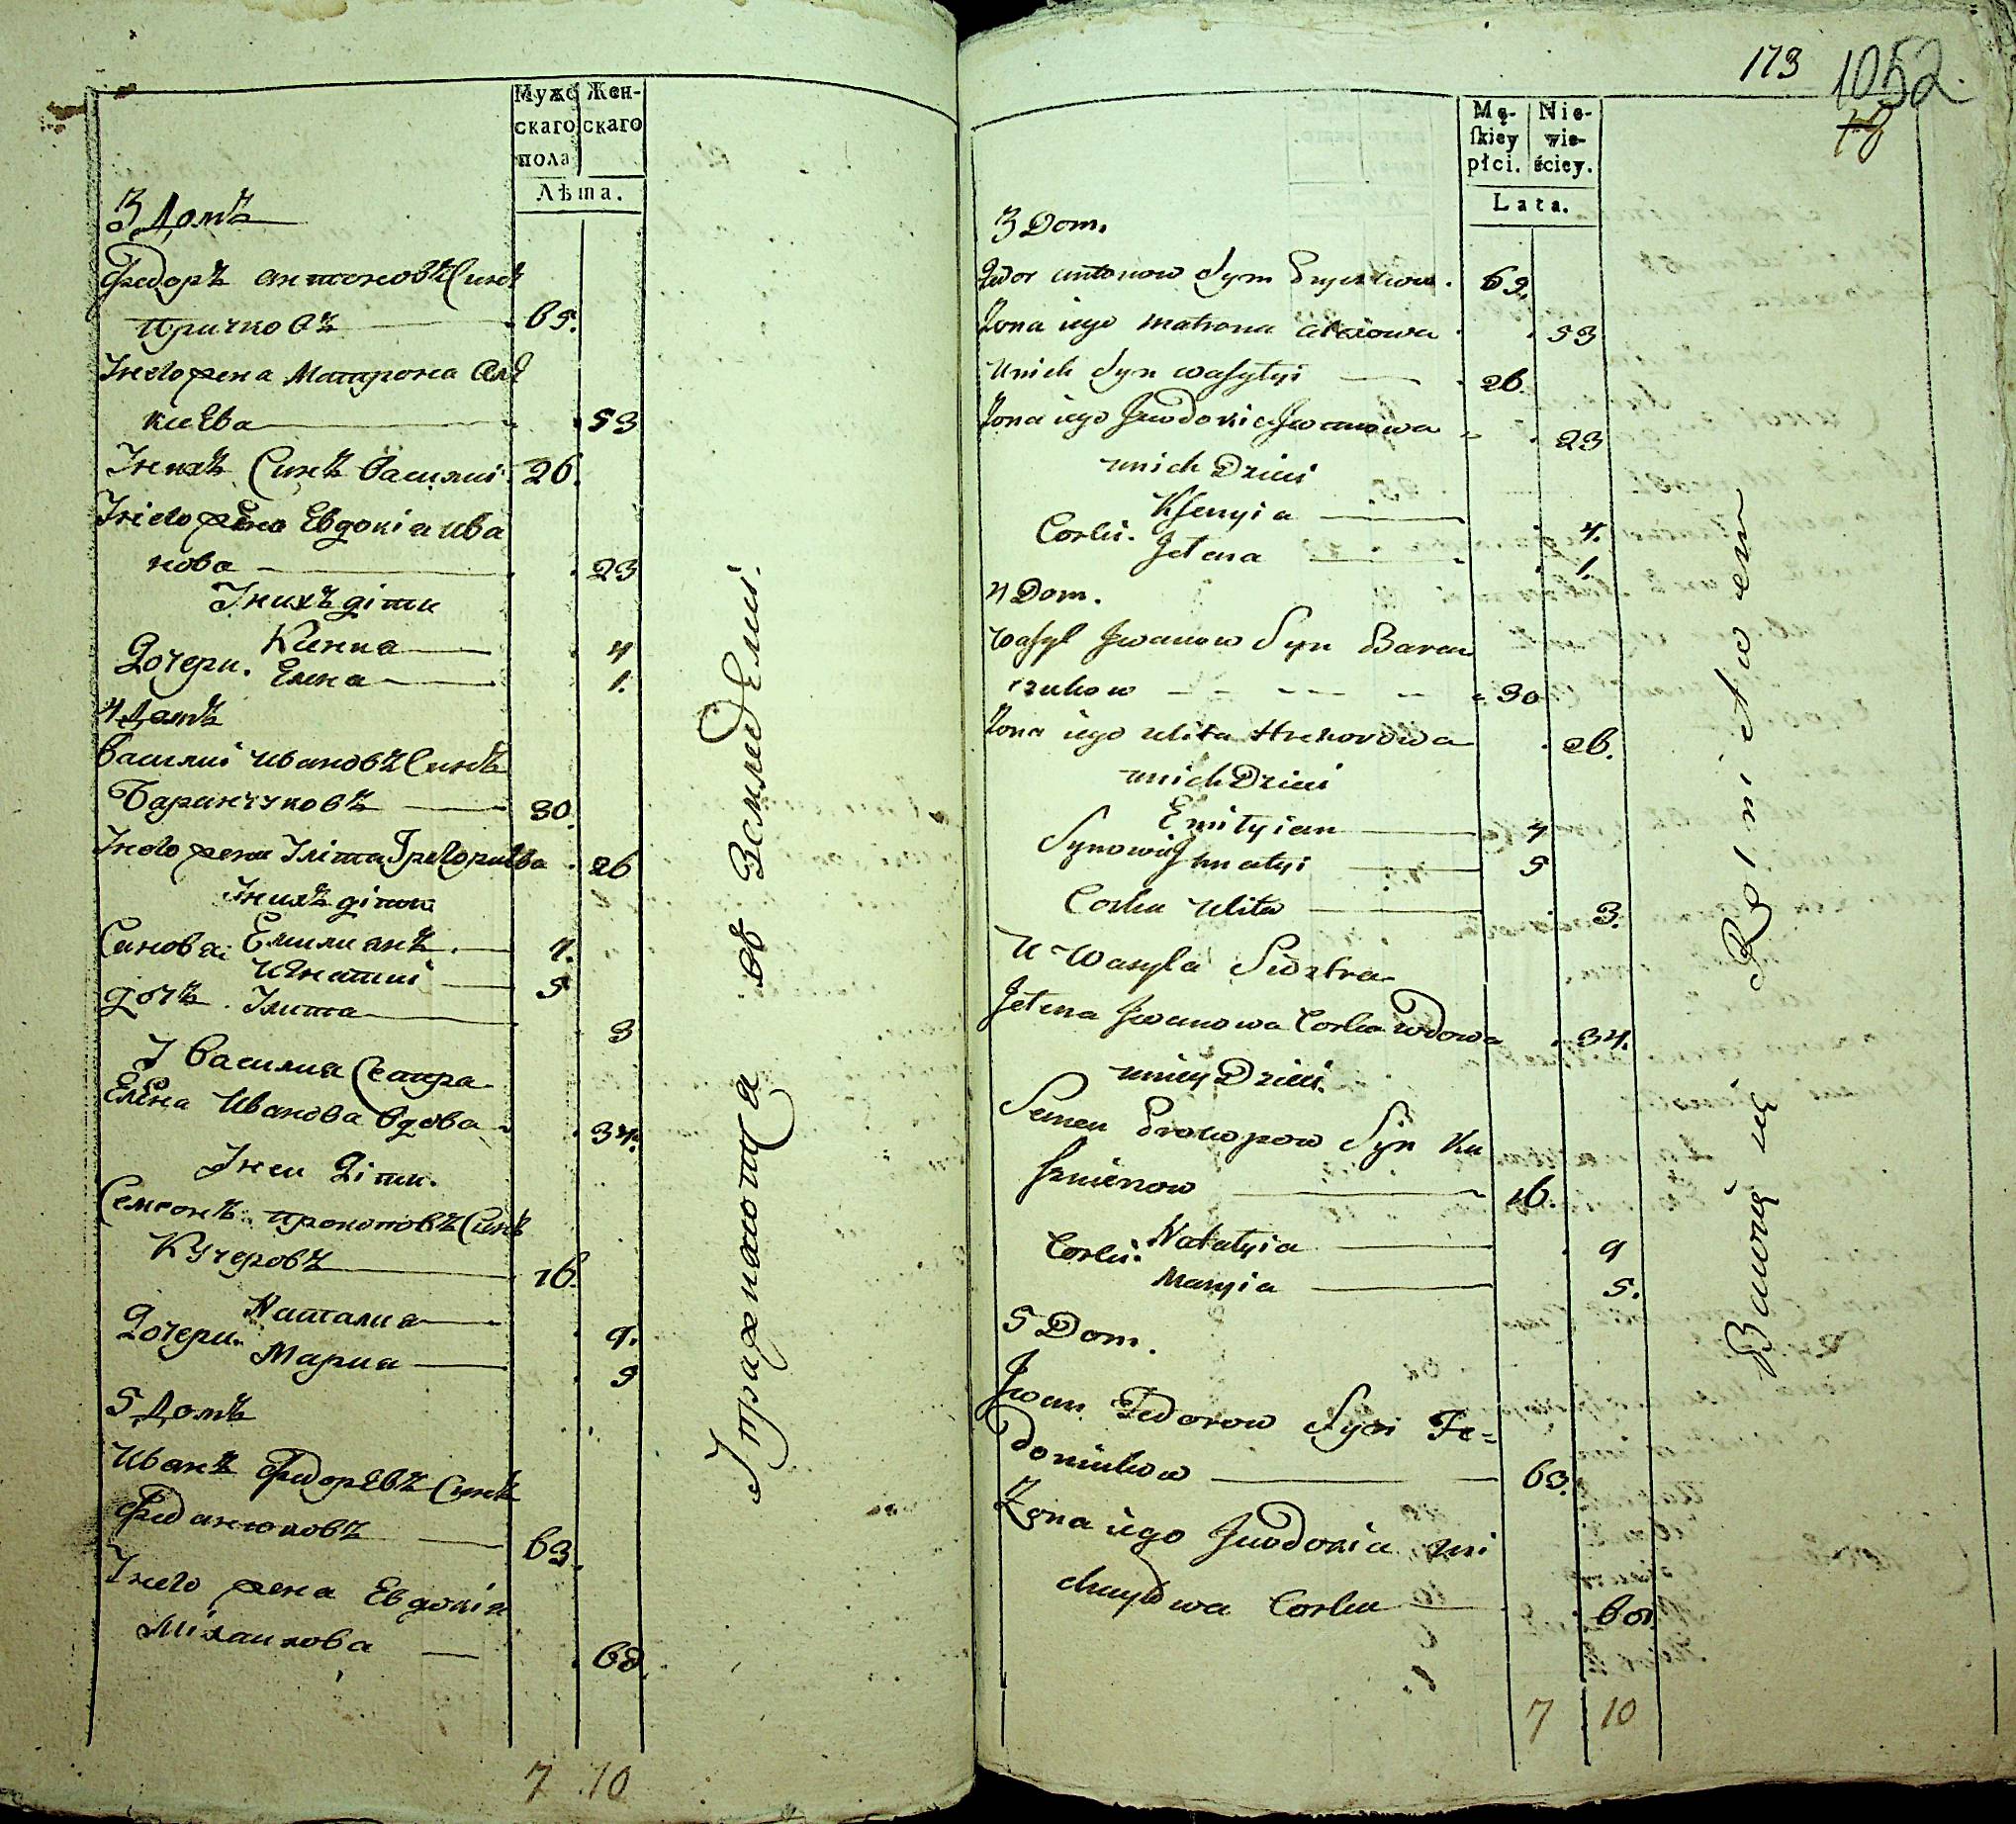 Мужс Жен-
скаго скаго
пола
Лѣта.
3 Домъ
Федоръ антоновъ Синъ
причковъ 65.
Унего жена Матрона Але
киева 53
Унихъ Синъ василий 26.
Унего жена Евдокіа ива
нова 23
Унихъ діти
Дочери. Ксенна 4
Елена 1.
4 Домъ
василий ивановъ Синъ
Баранчуковъ 30.
Унего жена Улита Григориева 26
Унихъ діти
Синовя: Емилианъ 7.
Игнатий 5
дочъ Улита 3
У василия Сестра
Елена Иванова вдова 34.
Унеи Діти.
Семионъ прокоповъ Синъ
Кучеровъ 16.
Дочери. Наталия 9.
Мариа 5
5 Домъ
Иванъ Федоревъ Синъ
Феданюковъ 63.
Унего жена Евдокіа
Михаилова 60.
7 10
Упражняются въ Земледелиі.
113 1052.
Mę- Nie-
skiey wie-
płci. ściey.
Lata.
3 Dom.
antonow Syn 62.
Zona iego Matrona 53
Unich Syn wasylyi 26
Zona iego Jewdokia Jwanowa 23
unich Dzieci
Corki. Ksenyia 4.
Jelena 1.
4 Dom.
Wasyl Jwanow Syn Baran
czukow 30
Zona iego Ulita Hrehorowa 26.
unich Dzieci
Synowie Emilyian 7
Jhnatyi 5
Corka Ulita 3.
U Wasyla Siostra
Jelena Jwanowa Corka wdowa 34.
uniey Dzieci.
Semen Prokopow Syn Ku
16.
Corki. Natalyia 9
Maryia 5.
5 Dom.
Jwan Fedorow Syn Fe-
doniukow 63.
Zona iego Jewdokia Mi
chayłowa Corka 60.
7 10
Bawią się Rolnictwem